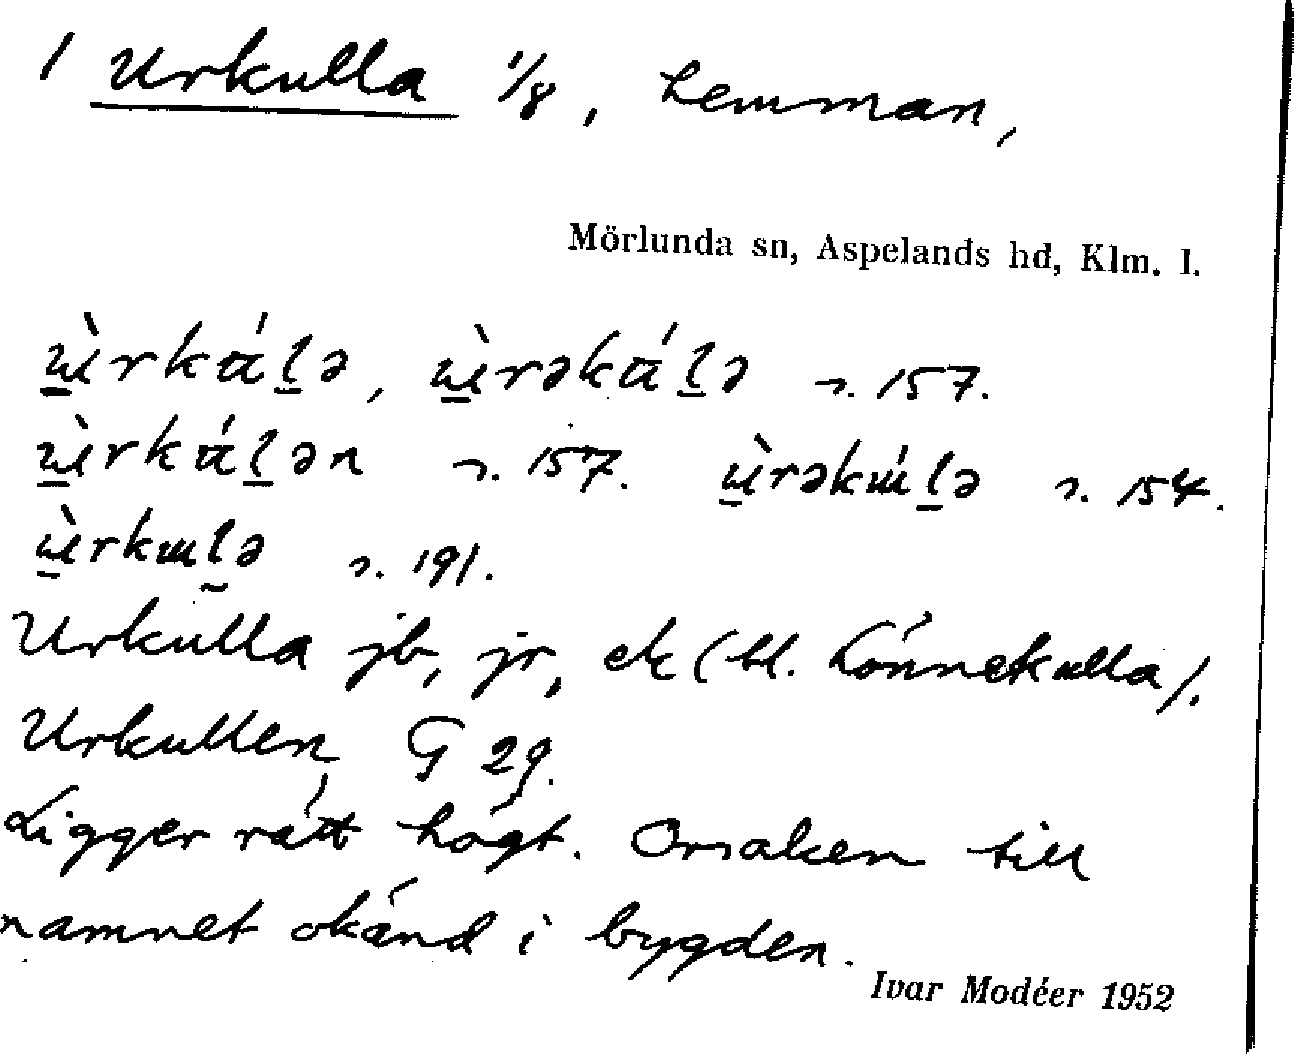 1 Urkulla 1/8, hemman,
Mörlunda sn, Aspelands hd, Klm. l.
s. 157.
s. 157. s. 154.
s. 191.
Urkulla jb, jr, ek (bl. Lönnekulla).
Urkullen, G 29.
Ligger rätt högt. Orsaken till
namnet okänd i bygden.
Ivar Modéer 1952